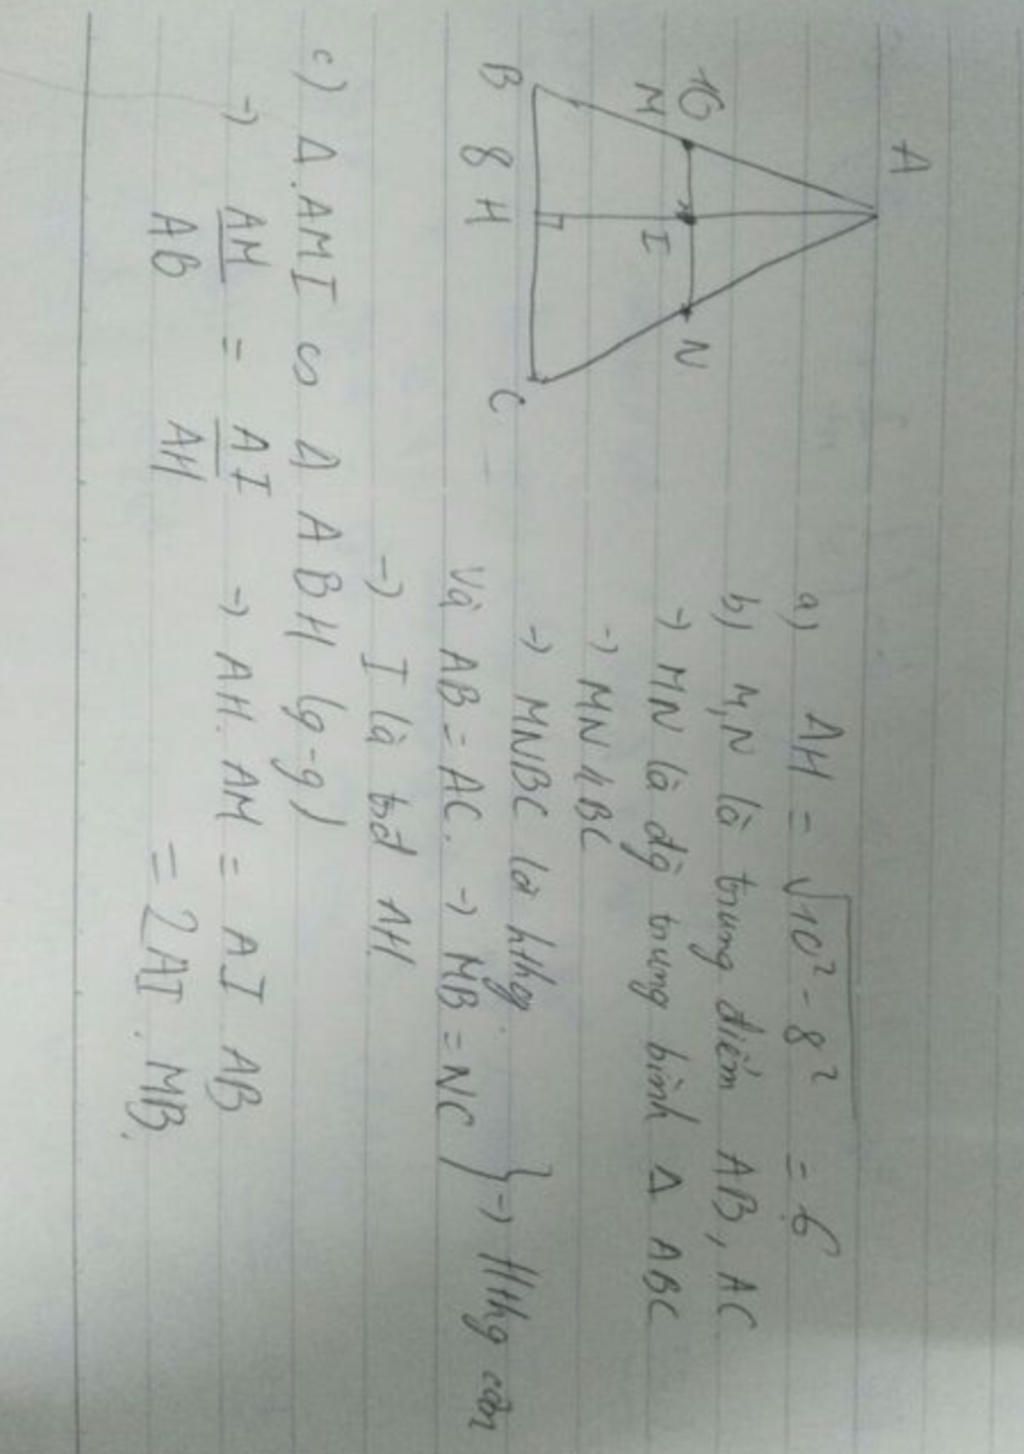 A
10
M
I
N
B 8 H C
a) AH = √10² - 8² = 6
b) M,N là trung điểm AB, AC
→ MN là đg trung bình Δ ABC
→ MN // BC
→ MNBC là hthg.
Và AB = AC. → MB = NC } → Hthg cân
→ I là trđ AH.
c) Δ.AMI ∽ Δ ABH (g-g)
→ AM/AB = AI/AH → AH. AM = AI AB
= 2AI . MB.